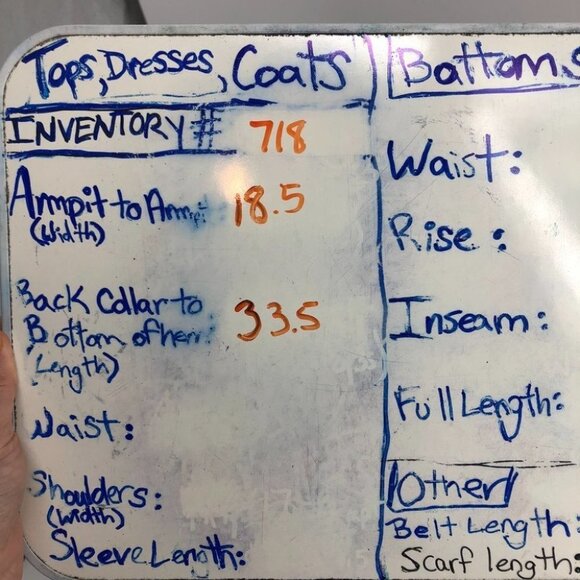 Tops, Dresses, Coats
INVENTORY # 718
Armpit to Armpit 18.5
(Width)
Back Collar to
Bottom of hem: 33.5
(Length)
Waist:
Shoulders:
(Width)
Sleeve Length:
Bottoms
Waist:
Rise:
Inseam:
Full Length:
Other
Belt Length:
Scarf length: